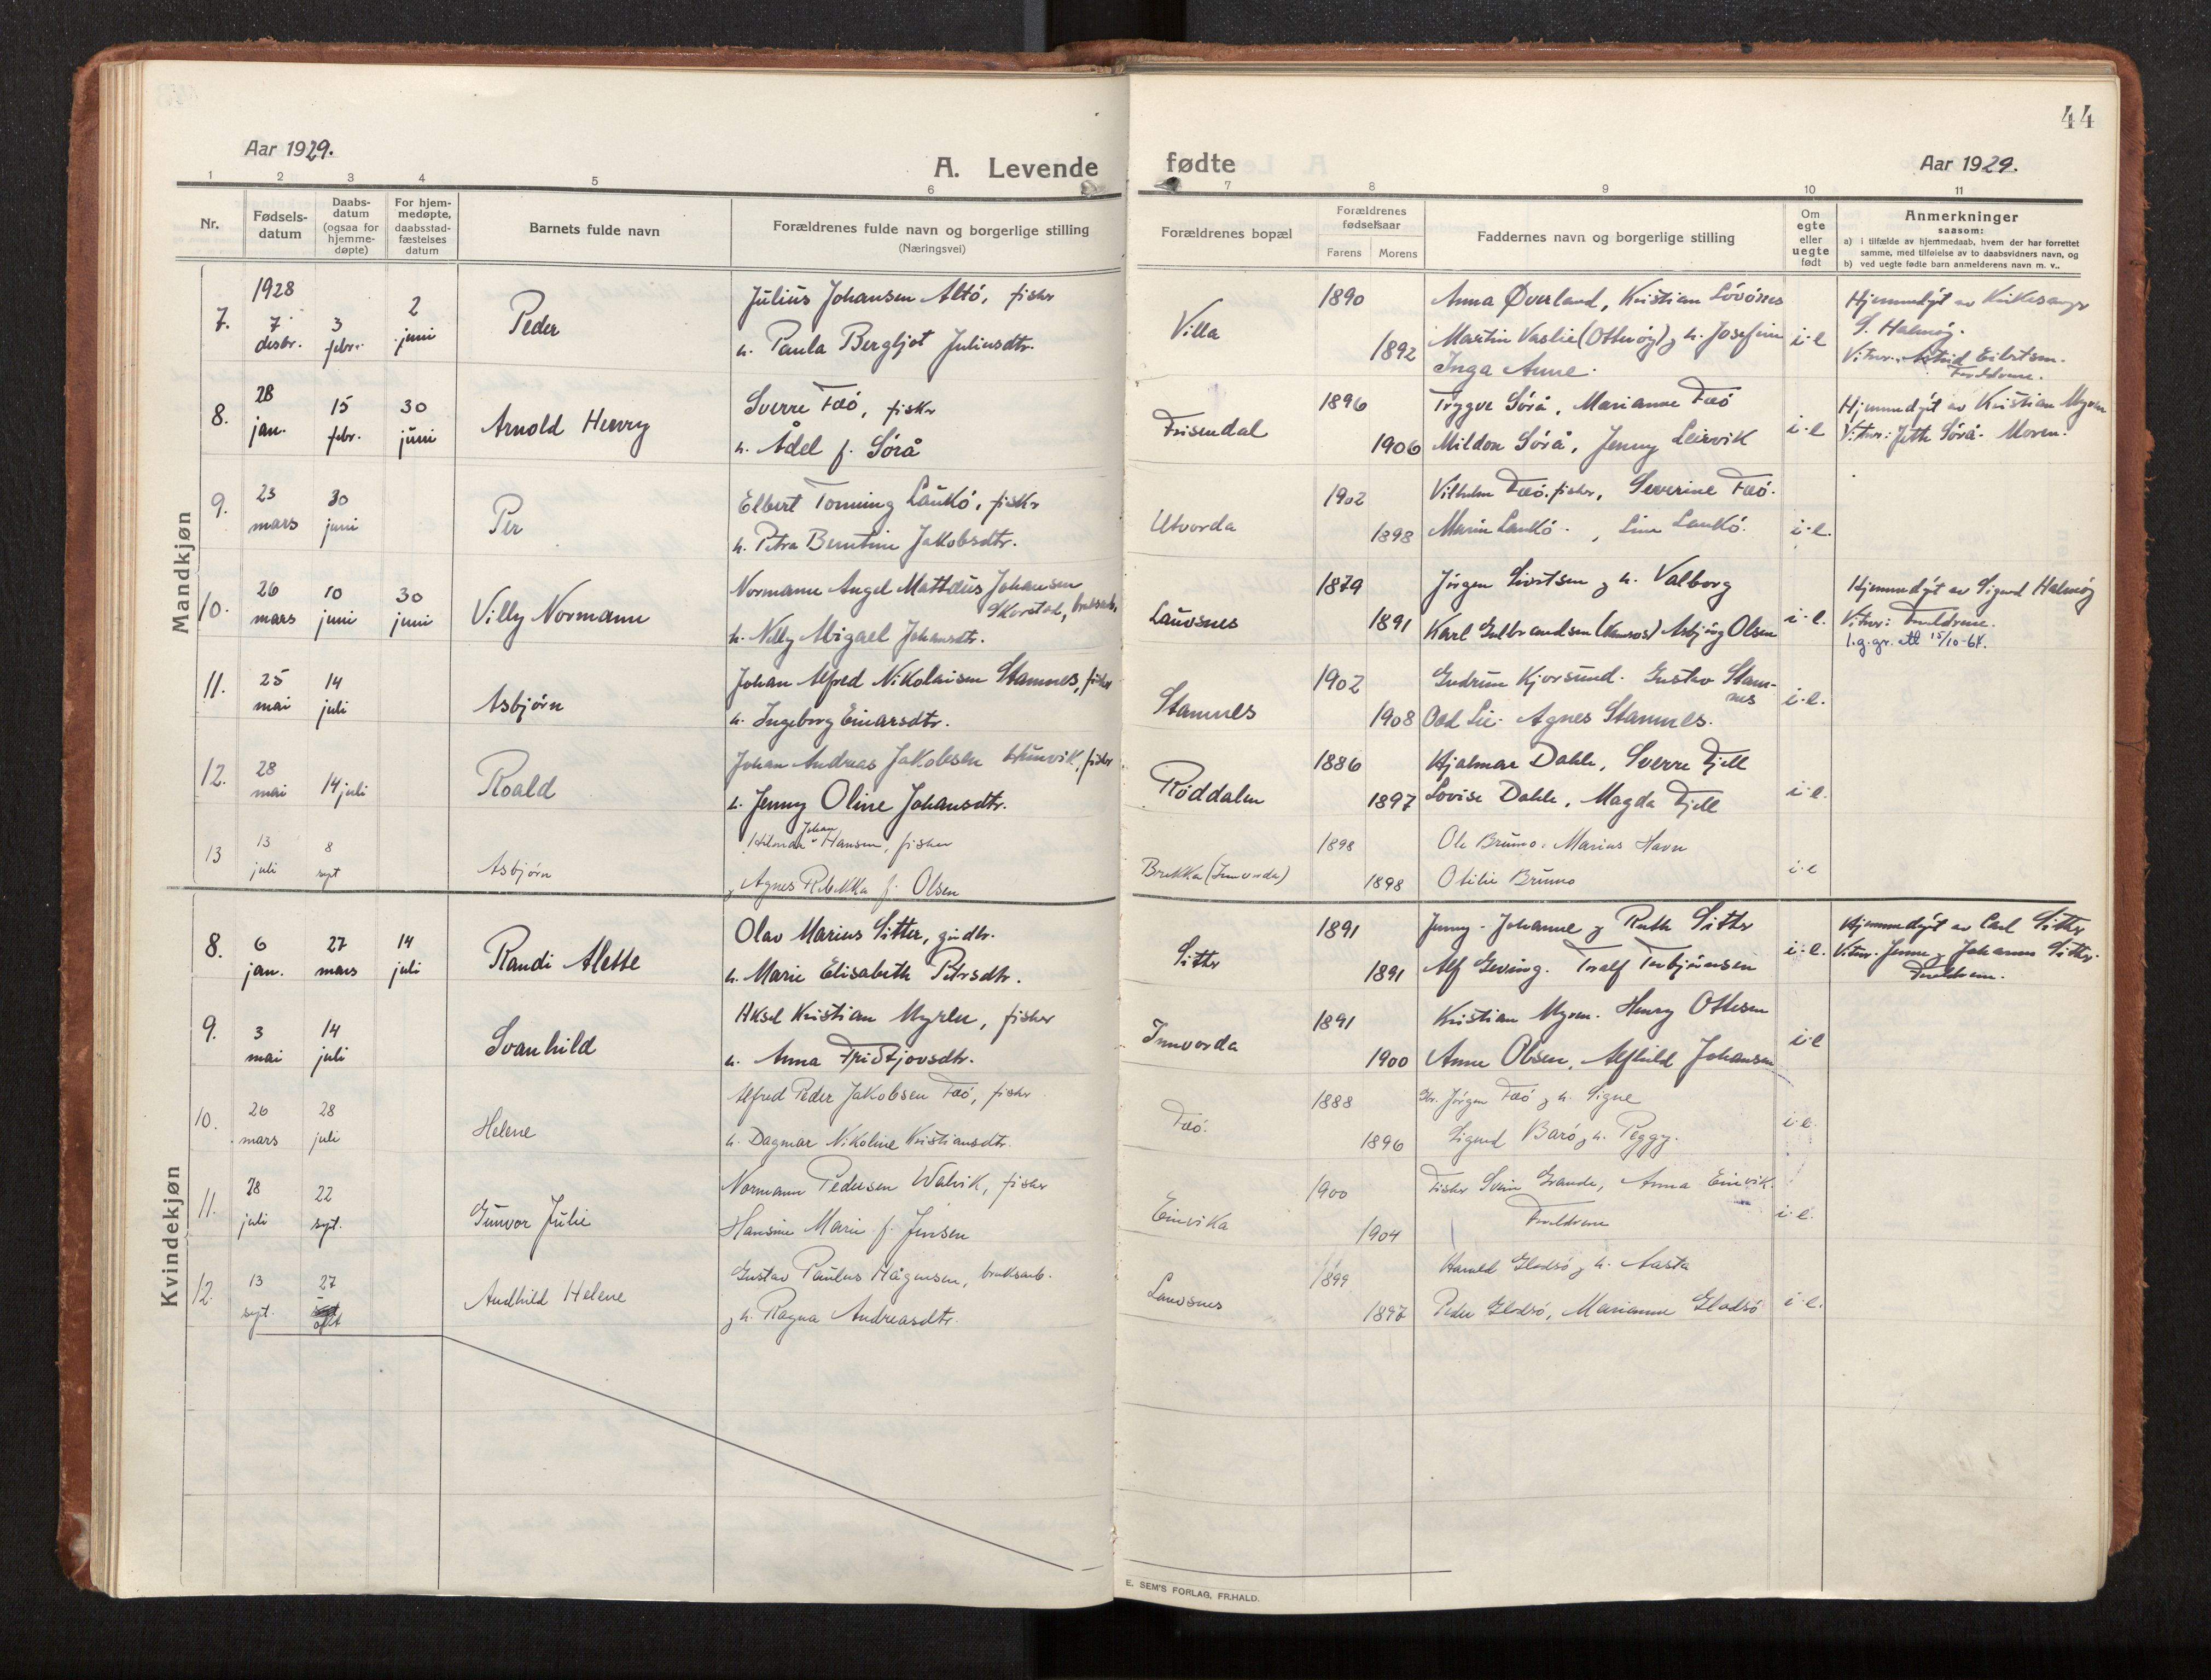 44
Aar 1929.
A. Levende
fødte
Aar 1929.
1 2 3 4 5 6 7 8 9 10 11
Nr.
Fødsels-
datum
Daabs-
datum
(ogsaa for
hjemme-
døpte)
For hjem-
medøpte,
daabsstad-
fæstelses
datum
Barnets fulde navn
Forældrenes fulde navn og borgerlige stilling
(Næringsvei)
Forældrenes bopæl
Forældrenes
fødselsaar
Farens
Morens
Faddernes navn og borgerlige stilling
Om
egte
eller
uegte
født
Anmerkninger
saasom:
a) i tilfælde av hjemmedaab, hvem der har forrettet
samme, med tilføielse av to daabsvidners navn, og
b) ved uegte fødte barn anmelderens navn m. v..
Mandkjøn
7.
1928
7
desbr.
3
febr.
2
juni
Peder
Julius Johansen Altö, fisker
h. Paula Bergljot Juliusdtr.
Villa
1890
1892
Anna Øverland, Kristian Lövönes
Martin Vaslie (Otterøy) og h. Josefine
Inga Anne.
i.e
Hjemmedöpt av Kirkesanger
S. Halmøy.
Vitner: Astrid Eilertsen.
Foreldrene.
8.
28
jan.
15
febr.
30
juni
Arnold Henry
Sverre Fæö, fisker
h. Ådel f. Sørå
Frisendal
1896
1906
Trygve Sørå, Marianne Fæö
Mildon Sørå, Jenny Leirvik
i.e
Hjemmedöpt av Kristian Myren
Vitner: Jette Sørå. Moren.
9.
23
mars
30
juni
Per
Elbert Tonning Laukö, fisker
h. Petra Berntine Jakobsdtr.
Utvorda
1902
1898
Vilhelm Fæö, fisker, Severine Fæö.
Marie Laukö, Line Laukö.
i.e.
10.
26
mars
10
juni
30
juni
Villy Normann
Normann Angel Mattæus Johansen
Skorstad, bruksarb.
h. Nelly Abigael Johansdtr.
Lauvsnes
1879
1891
Jörgen Sivertsen og h. Valborg
Karl Gulbrandsen (Namsos) Asbjörg Olsen
i.e.
Hjemmedöpt av Sigurd Halmöy
Vitner: Foreldrene.
l.g.gr. att 15/10-64.
11.
25
mai
14
juli
Asbjørn
Johan Alfred Nikolaisen Stamnes, fisker
h. Ingeborg Einarsdtr.
Stamnes
1902
1908
Gudrun Kjorsund. Gustav Stam-
nes
Odd Lie. Agnes Stamnes.
i.e.
12.
28
mai
14 juli
Roald
Johan Andreas Jakobsen, fisker
h. Jenny Oline Johansdtr.
Røddalen
1886
1897
Hjalmar Dahle, Sverre Fjell
Lovise Dahle, Magda Fjell
i.e.
13
13
juli
8
sept
Asbjørn
Johan
Hansen, fisker
og Agnes Rebekka f. Olsen
Brekka (Innvorda)
1898
1898
Ole Brumo. Marius Havn
Otilie Brumo
i.e
Kvindekjøn
8.
6
jan.
27
mars
14
juli
Randi Alette
Olav Marius Sitter, gårdbr.
h. Marie Elisabeth Petersdtr.
Sitter
1891
1891
Jenny. Johanne og Ruth Sitter
Alf Geving. Toralf Torbjörnsen
i.e.
Hjemmedöpt av Carl Sitter
Vitner. Jenny og Johanne Sitter.
Foreldrene.
9.
3
mai
14
juli
Svanhild
Aksel Kristian Myren, fisker
h. Anna Fridtjovsdtr.
Innvorda
1891
1900
Kristian Myren. Henry Ottesen
Anne Olsen, Alfhild Johansen
i.e
10.
26
mars
28
juli
Helene
Alfred Peder Jakobsen Fæö, fisker
h. Dagmar Nikoline Kristiansdtr.
Fæö.
1888
1896
Jörgen Fæö og h. Signe
Sigurd Barö og h. Peggy.
i.e.
11.
28
juli
22
sept.
Gunvor Julie
Normann Pedersen Walvik, fisker
Hansine Marie f. Jensen
Einvika
1900
1904
Fisker Svein Grande, Anna Einvik.
Foreldrene
i.e.
12.
13
sept.
27
okt
Audhild Helene
Gustav Paulus Hågensen, bruksarb.
og h. Ragna Andreasdtr.
Lauvsnes
1899
1897
Harald Gladsö og h. Aasta
Peder Gladsö, Marianne Gladsö
i.e.
E. SEM'S FORLAG, FR.HALD.